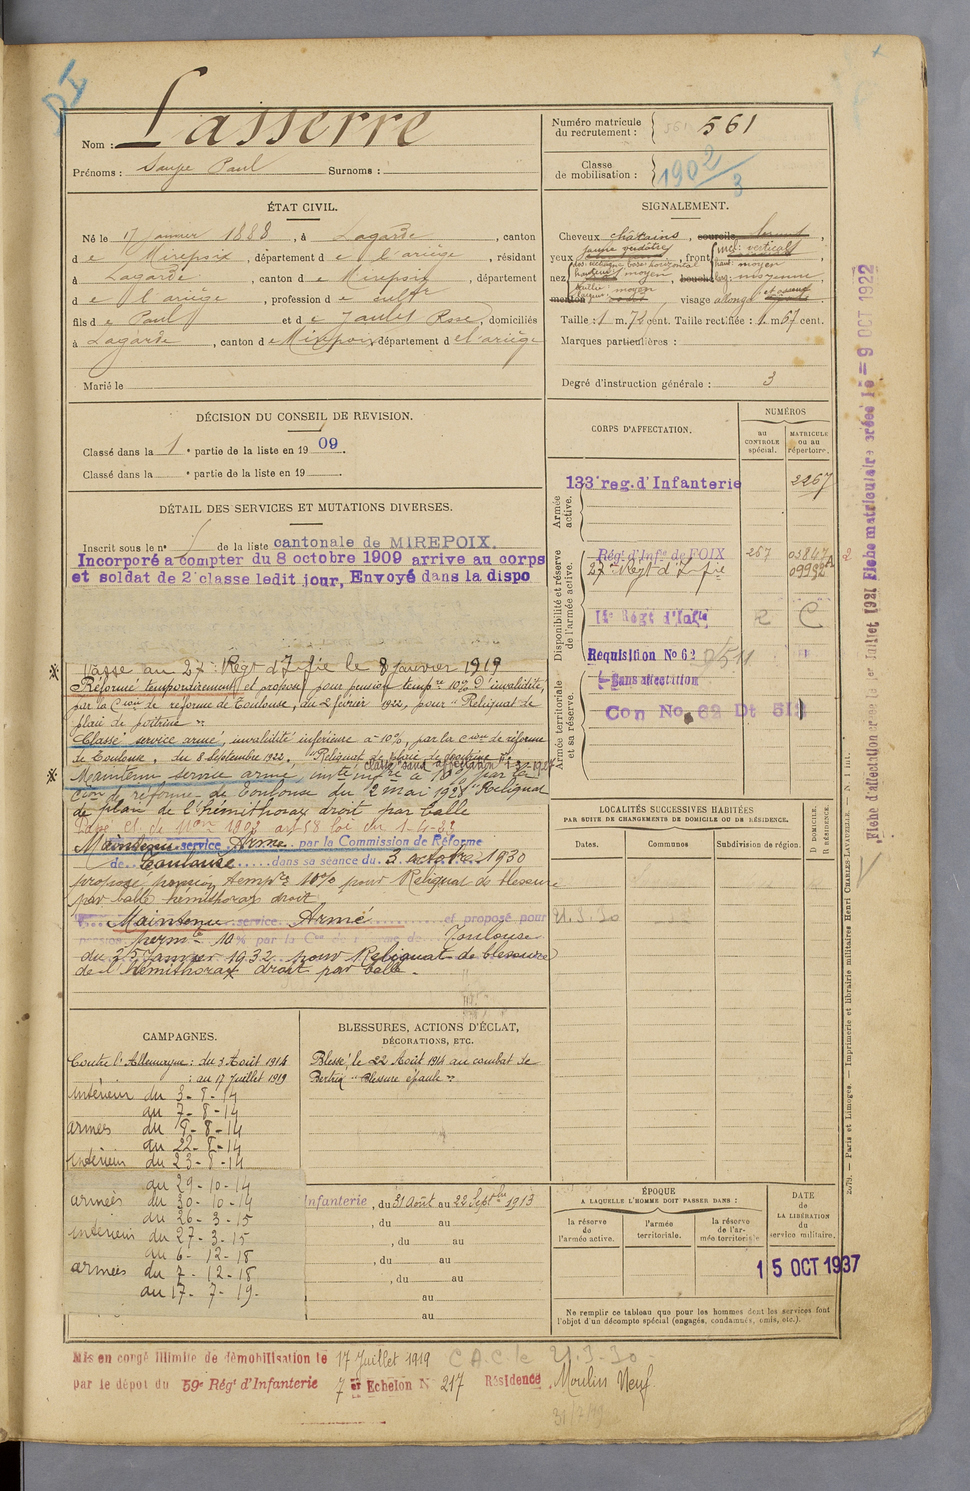 DI
Nom : Lasserre
Prénoms : Paul Surnoms :
Numéro matricule du recrutement : 561
Classe de mobilisation : 1902/3
ÉTAT CIVIL.
Né le 17 Janvier 1888, à Lagarde, canton
d e Mirepoix, département d e l'ariège, résidant
à Lagarde, canton d e Mirepoix, département
d e l'ariège, profession d e cultr
fils d e Paul et d e Jaulet Rose, domiciliés
à Lagarde, canton d e Mirepoix département d e l'ariège
Marié le
SIGNALEMENT.
Cheveux chatains, sourcils
yeux jaune verdâtre, front incl: vertical
haut: moyen
nez dos: rectiligne base: horizontal
hauteur: moyen, bouche larg: moyenne
saillie: moyen
largeur: moyen
menton, visage allongé et osseux
Taille : 1 m. 72 cent. Taille rectifiée : 1 m. 67 cent.
Marques particulières :
Degré d'instruction générale : 3
DÉCISION DU CONSEIL DE REVISION.
Classé dans la 1e partie de la liste en 1909.
Classé dans la e partie de la liste en 19
DÉTAIL DES SERVICES ET MUTATIONS DIVERSES.
Inscrit sous le n° de la liste cantonale de MIREPOIX.
Incorporé a compter du 8 octobre 1909 arrive au corps
et soldat de 2e classe ledit jour, Envoyé dans la dispo
Passé au 27e Régt d'Ifie le 8 janvier 1919
Réformé temporairement et proposé pour pension tempre 10% d'invalidité,
par la Cion de réforme de Toulouse, du 2 février 1922, pour "Reliquat de
plaie de poitrine".
Classé service armé, invalidité inférieure à 10%, par la Cion de réforme
de Toulouse, du 8 Septembre 1922, "Reliquat de plaie de poitrine".
Classé "sans affectation"
Maintenu service armé, par la
Cion de réforme de Toulouse du 12 mai 1928 "Reliquat
de plaie de l'hémithorax droit par balle
Maintenu service Armé par la Commission de Réforme
de Toulouse dans sa séance du 3 octobre 1930
propose pension tempre 10% pour Reliquat de blessure
par balle hémithorax droit
Maintenu service Armé et proposé pour
pension permte 10% par la Con de réforme de Toulouse
du 25 Janvier 1932 pour Reliquat de blessure
de l'hémithorax droit par balle.
CORPS D'AFFECTATION.
NUMÉROS
au CONTROLE spécial.
MATRICULE ou au répertoire.
Armée active.
133e reg. d'Infanterie 2267
Disponibilité et réserve de l'armée active.
Régt d'Infie de FOIX 267 03847
27e Régt d'Ifie 09992 A
Régt d'Infie R C
Requisition No 62
Armée territoriale et sa réserve.
Sans affectation
Con No. 62 Dt 511
LOCALITÉS SUCCESSIVES HABITÉES
PAR SUITE DE CHANGEMENTS DE DOMICILE OU DE RÉSIDENCE.
Dates.
Communes
Subdivision de région.
D DOMICILE.
R RÉSIDENCE.
21.3.30
CAMPAGNES.
Contre l'Allemagne : du 3 Août 1914
: au 17 Juillet 1919
intérieur du 3-8-14
au 7-8-14
armées du 8-8-14
au 22-8-14
intérieur du 23-8-14
au 29-10-14
armées du 30-10-14
au 26-3-15
intérieur du 27-3-15
au 6-12-18
armées du 7-12-18
au 17-7-19.
BLESSURES, ACTIONS D'ÉCLAT,
DÉCORATIONS, ETC.
Blessé, le 22 Août 1914 au combat de
Bertrix "Blessure épaule".
Infanterie, du 31 Août au 22 Septbre 1913
, du au
, du au
, du au
, du au
au
au
ÉPOQUE
A LAQUELLE L'HOMME DOIT PASSER DANS :
la réserve de l'armée active.
l'armée territoriale.
la réserve de l'armée territoriale
DATE de LA LIBÉRATION du service militaire.
15 OCT 1937
Ne remplir ce tableau que pour les hommes dont les services font
l'objet d'un décompte spécial (engagés, condamnés, omis, etc.).
Mis en congé illimité de démobilisation le 17 Juillet 1919 C.A.C. le 21-3-30
par le dépôt du 59e Régt d'Infanterie 7 er Echelon N° 217 Résidence Moulin Neuf
Fiche d'affectation créée le 1er Juillet 1921 Fiche matriculaire créée le = 9 OCT 1922
Paris et Limoges. — Imprimerie et librairie militaires Henri CHARLES-LAVAUZELLE. — N. 1 int.